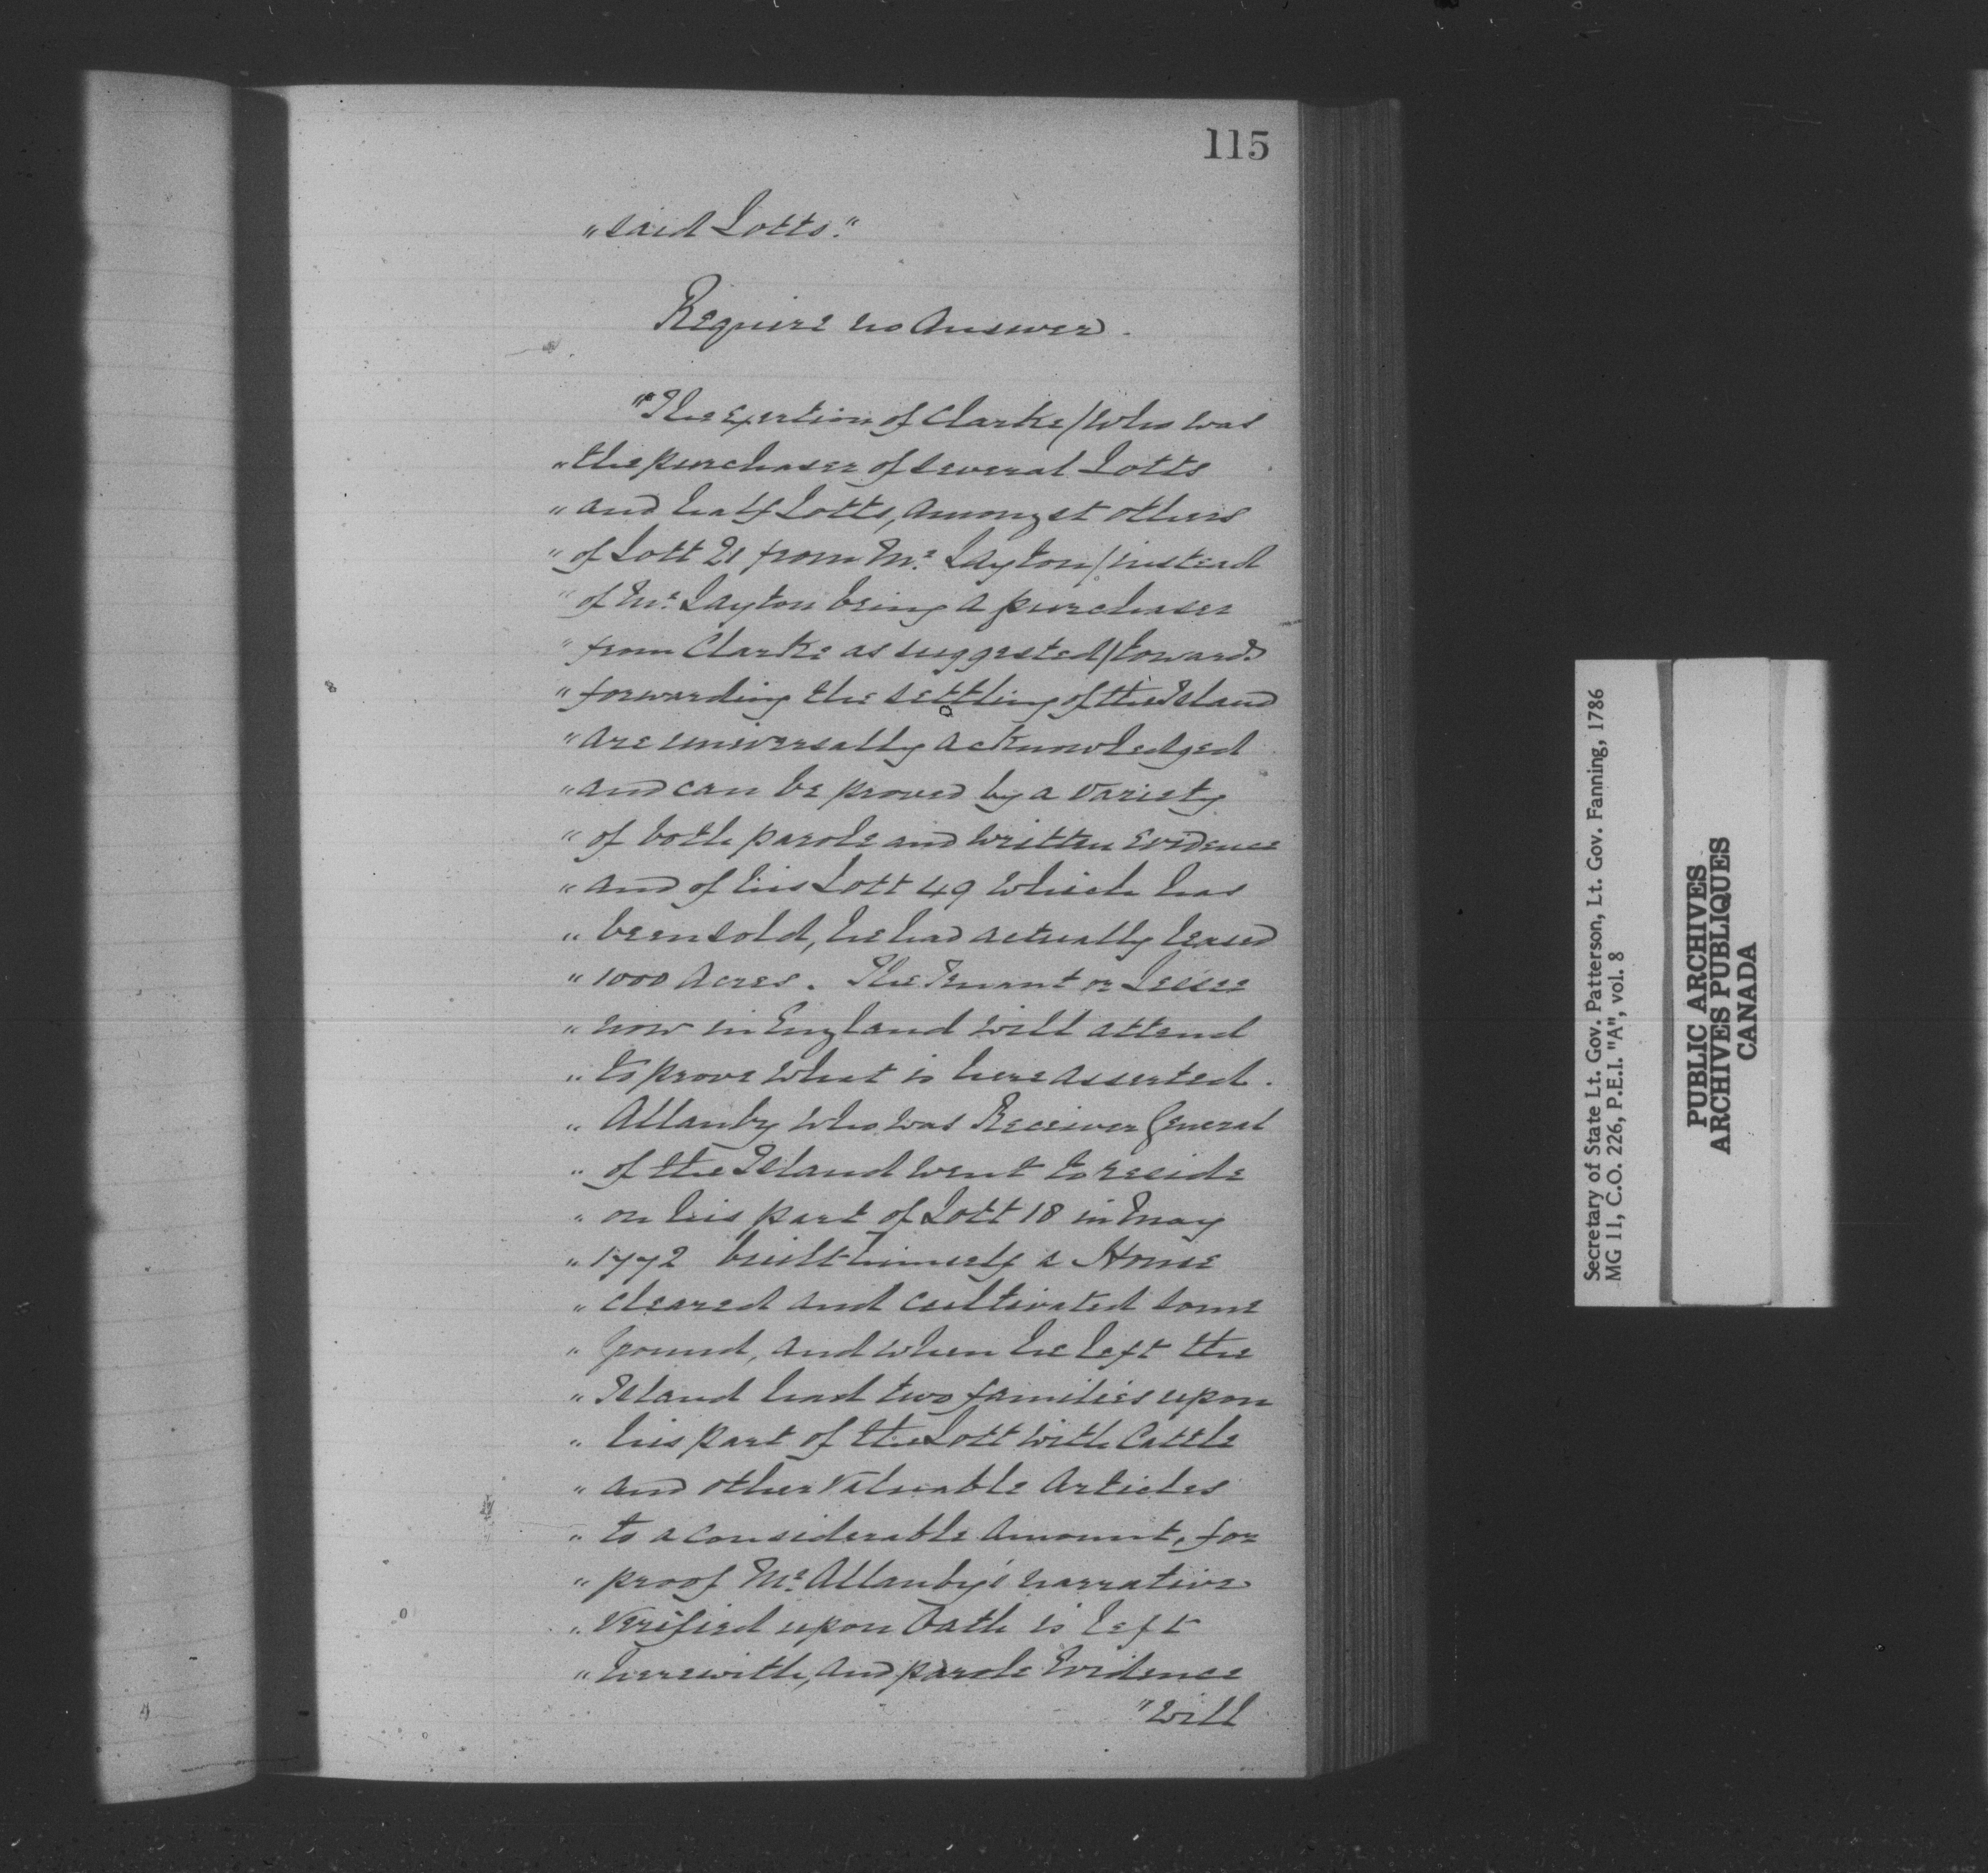 115
"said Lotts."
Require no Answer.
"The Exertion of Clarke/who was
"the purchaser of several Lotts
"and half Lotts, amongst others
"of Lott 21 from Mr. Layton/instead
"of Mr. Layton being a purchaser
"from Clarke as suggested/towards
"forwarding the settling of the Island
"are universally acknowledged
"and can be proved by a variety
"of both parole and written Evidence
"and of his Lott 49 which has
"been sold, he had actually leased
"1000 Acres. The Tenant or Lessee
"now in England will attend
"to prove what is here asserted.
"Allanby who was Receiver General
"of the Island went to reside
"on his part of Lott 18 in May
"1772 built himself a House
"cleared and cultivated some
"ground, and when he left the
"Island had two families upon
"his part of the Lott with Cattle
"and other valuable Articles
"to a considerable amount, for
"proof Mr. Allanby's narrative
"verified upon Oath is left
"herewith, and parole Evidence
"will
Secretary of State Lt. Gov. Patterson, Lt. Gov. Fanning, 1786
MG 11, C.O. 226, P.E.I. "A", vol. 8
PUBLIC ARCHIVES
ARCHIVES PUBLIQUES
CANADA